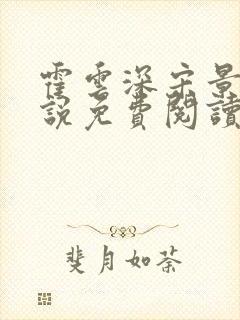 霍雲深宗景
說免費閱讀
斐月如荼